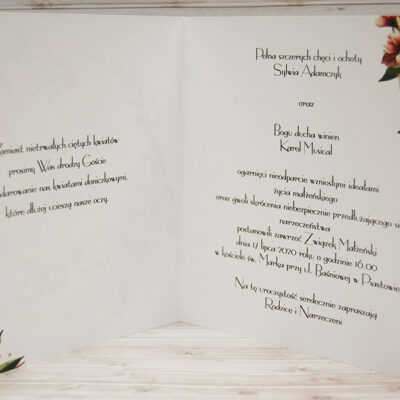 Zamiast nietrwałych ciętych kwiatów
prosimy Was drodzy Goście
o obdarowanie nas kwiatami doniczkowymi,
które dłużej ucieszą nasze oczy.
Pełna szczerych chęci i ochoty
Sylwia Adamczyk
oraz
Bogu ducha winien
Karol Musical
ogarnięci nieodparcie wzniosłymi ideałami
życia małżeńskiego
oraz gwoli skrócenia niebezpiecznie przedłużającego się
narzeczeństwa
postanowili zawrzeć Związek Małżeński
dnia 17 lipca 2020 roku o godzinie 16.00
w kościele św. Marka przy ul. Baśniowej w Piastowie
Na tę uroczystość serdecznie zapraszają
Rodzice i Narzeczeni